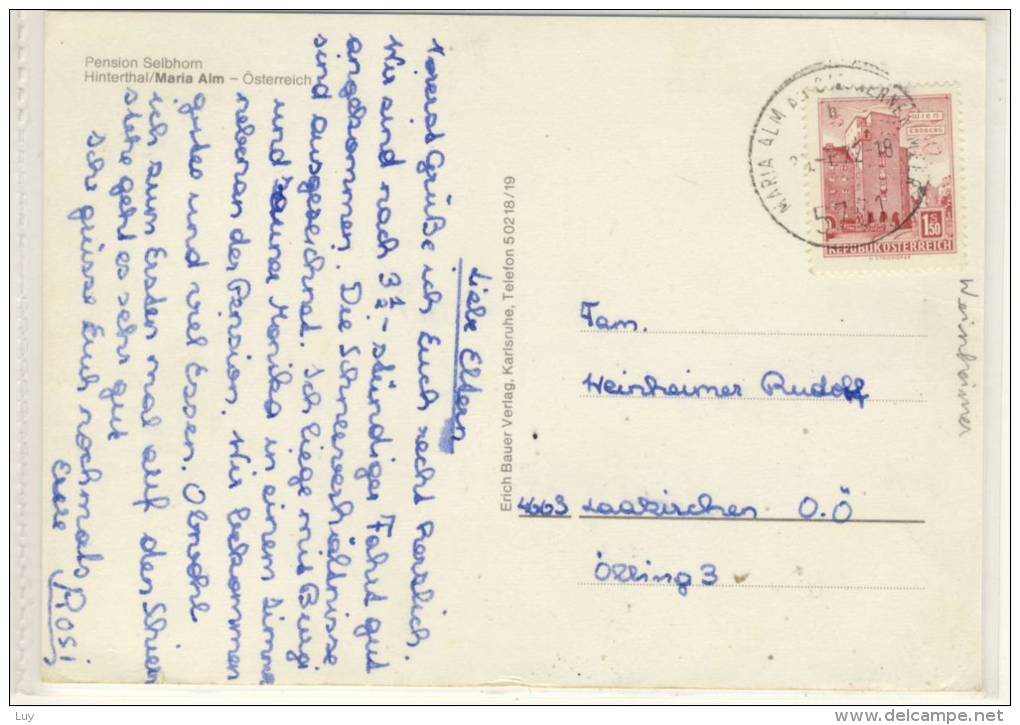 Pension Selbhorn
Hinterthal/Maria Alm – Österreich
Liebe Eltern
Vorerst Grüße ich Euch recht herzlich.
Wir sind nach 3 1/2 - stündiger Fahrt gut
angekommen. Die Schneeverhältnisse
sind ausgezeichnet. Ich liege mit Burgi
und Monika in einem Zimmer
nebenan der Pension. Wir bekommen
gutes und viel Essen. Obwohl
ich zum Ersten mal auf den Skiern
stehe geht es sehr gut
Ich grüsse Euch nochmals
Eure Rosi
Erich Bauer Verlag, Karlsruhe, Telefon 5 02 18/19
MARIA ALM AM STEINERNEN MEER
WIEN
ERDBERG
S
1.50
REPUBLIK ÖSTERREICH
Fam.
Weinheimer Rudolf
4663 Laakirchen O.Ö
Özling 3
Weinheimer
Luy
delcampe.net